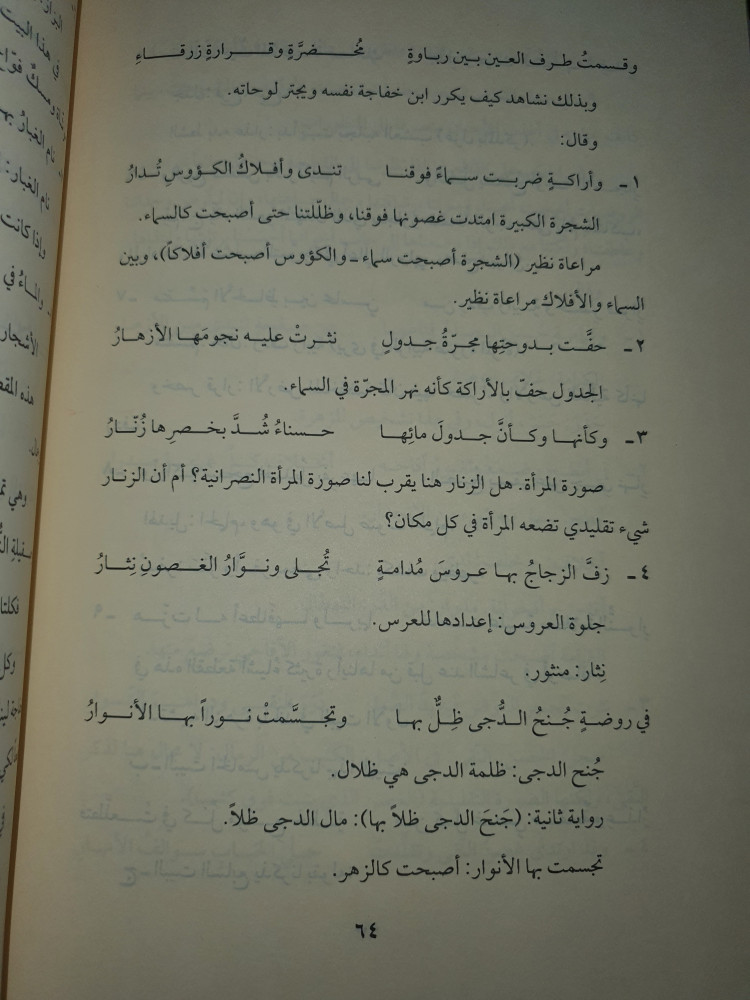 وقسمتُ طرف العين بين رباوةٍ مُخضرَّةٍ وقرارةٍ زرقاءِ
وبذلك نشاهد كيف يكرر ابن خفاجة نفسه ويجتر لوحاته.
وقال:
١ - وأراكةٍ ضربت سماءً فوقنا تندى وأفلاكُ الكؤوسِ تُدارُ
الشجرة الكبيرة امتدت غصونها فوقنا، وظلّلتنا حتى أصبحت كالسماء.
مراعاة نظير (الشجرة أصبحت سماء - والكؤوس أصبحت أفلاكاً)، وبين
السماء والأفلاك مراعاة نظير.
٢ - حفَّت بدوحتِها مجرّةُ جدولٍ نثرتْ عليه نجومَها الأزهارُ
الجدول حفّ بالأراكة كأنه نهر المجرّة في السماء.
٣ - وكأنها وكأنَّ جدولَ مائِها حسناءُ شُدَّ بخصرِها زُنّارُ
صورة المرأة. هل الزنار هنا يقرب لنا صورة المرأة النصرانية؟ أم أن الزنار
شيء تقليدي تضعه المرأة في كل مكان؟
٤ - زفَّ الزجاجُ بها عروسَ مُدامةٍ تُجلى ونوَّارُ الغصونِ نِثارُ
جلوة العروس: إعدادها للعرس.
نِثار: منثور.
في روضةٍ جُنحُ الدُّجى ظِلٌّ بها وتجسَّمتْ نوراً بها الأنوارُ
جُنح الدجى: ظلمة الدجى هي ظلال.
رواية ثانية: (جَنحَ الدجى ظلاً بها): مال الدجى ظلاً.
تجسمت بها الأنوار: أصبحت كالزهر.
٦٤